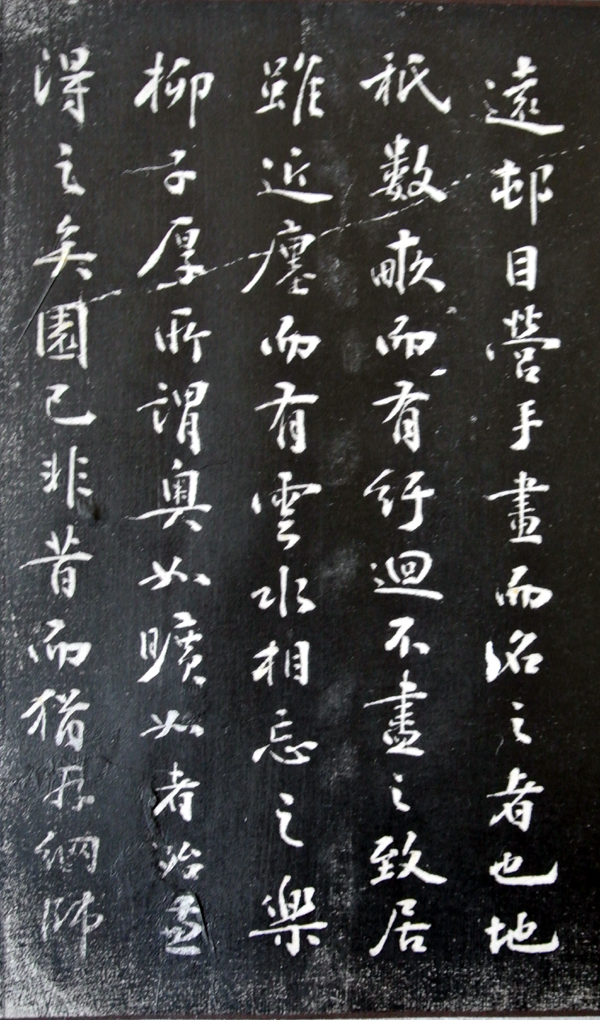 遠邨目營手畫而名之者也地
祇數畝而有紆迴不盡之致居
雖近廛而有雲水相忘之樂
柳子厚所謂奧如曠如者殆
得之矣園已非昔而猶存網師